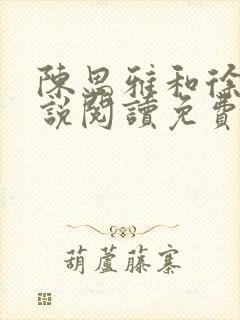 陳思雅和徐
說閱讀免費
葫蘆藤寨